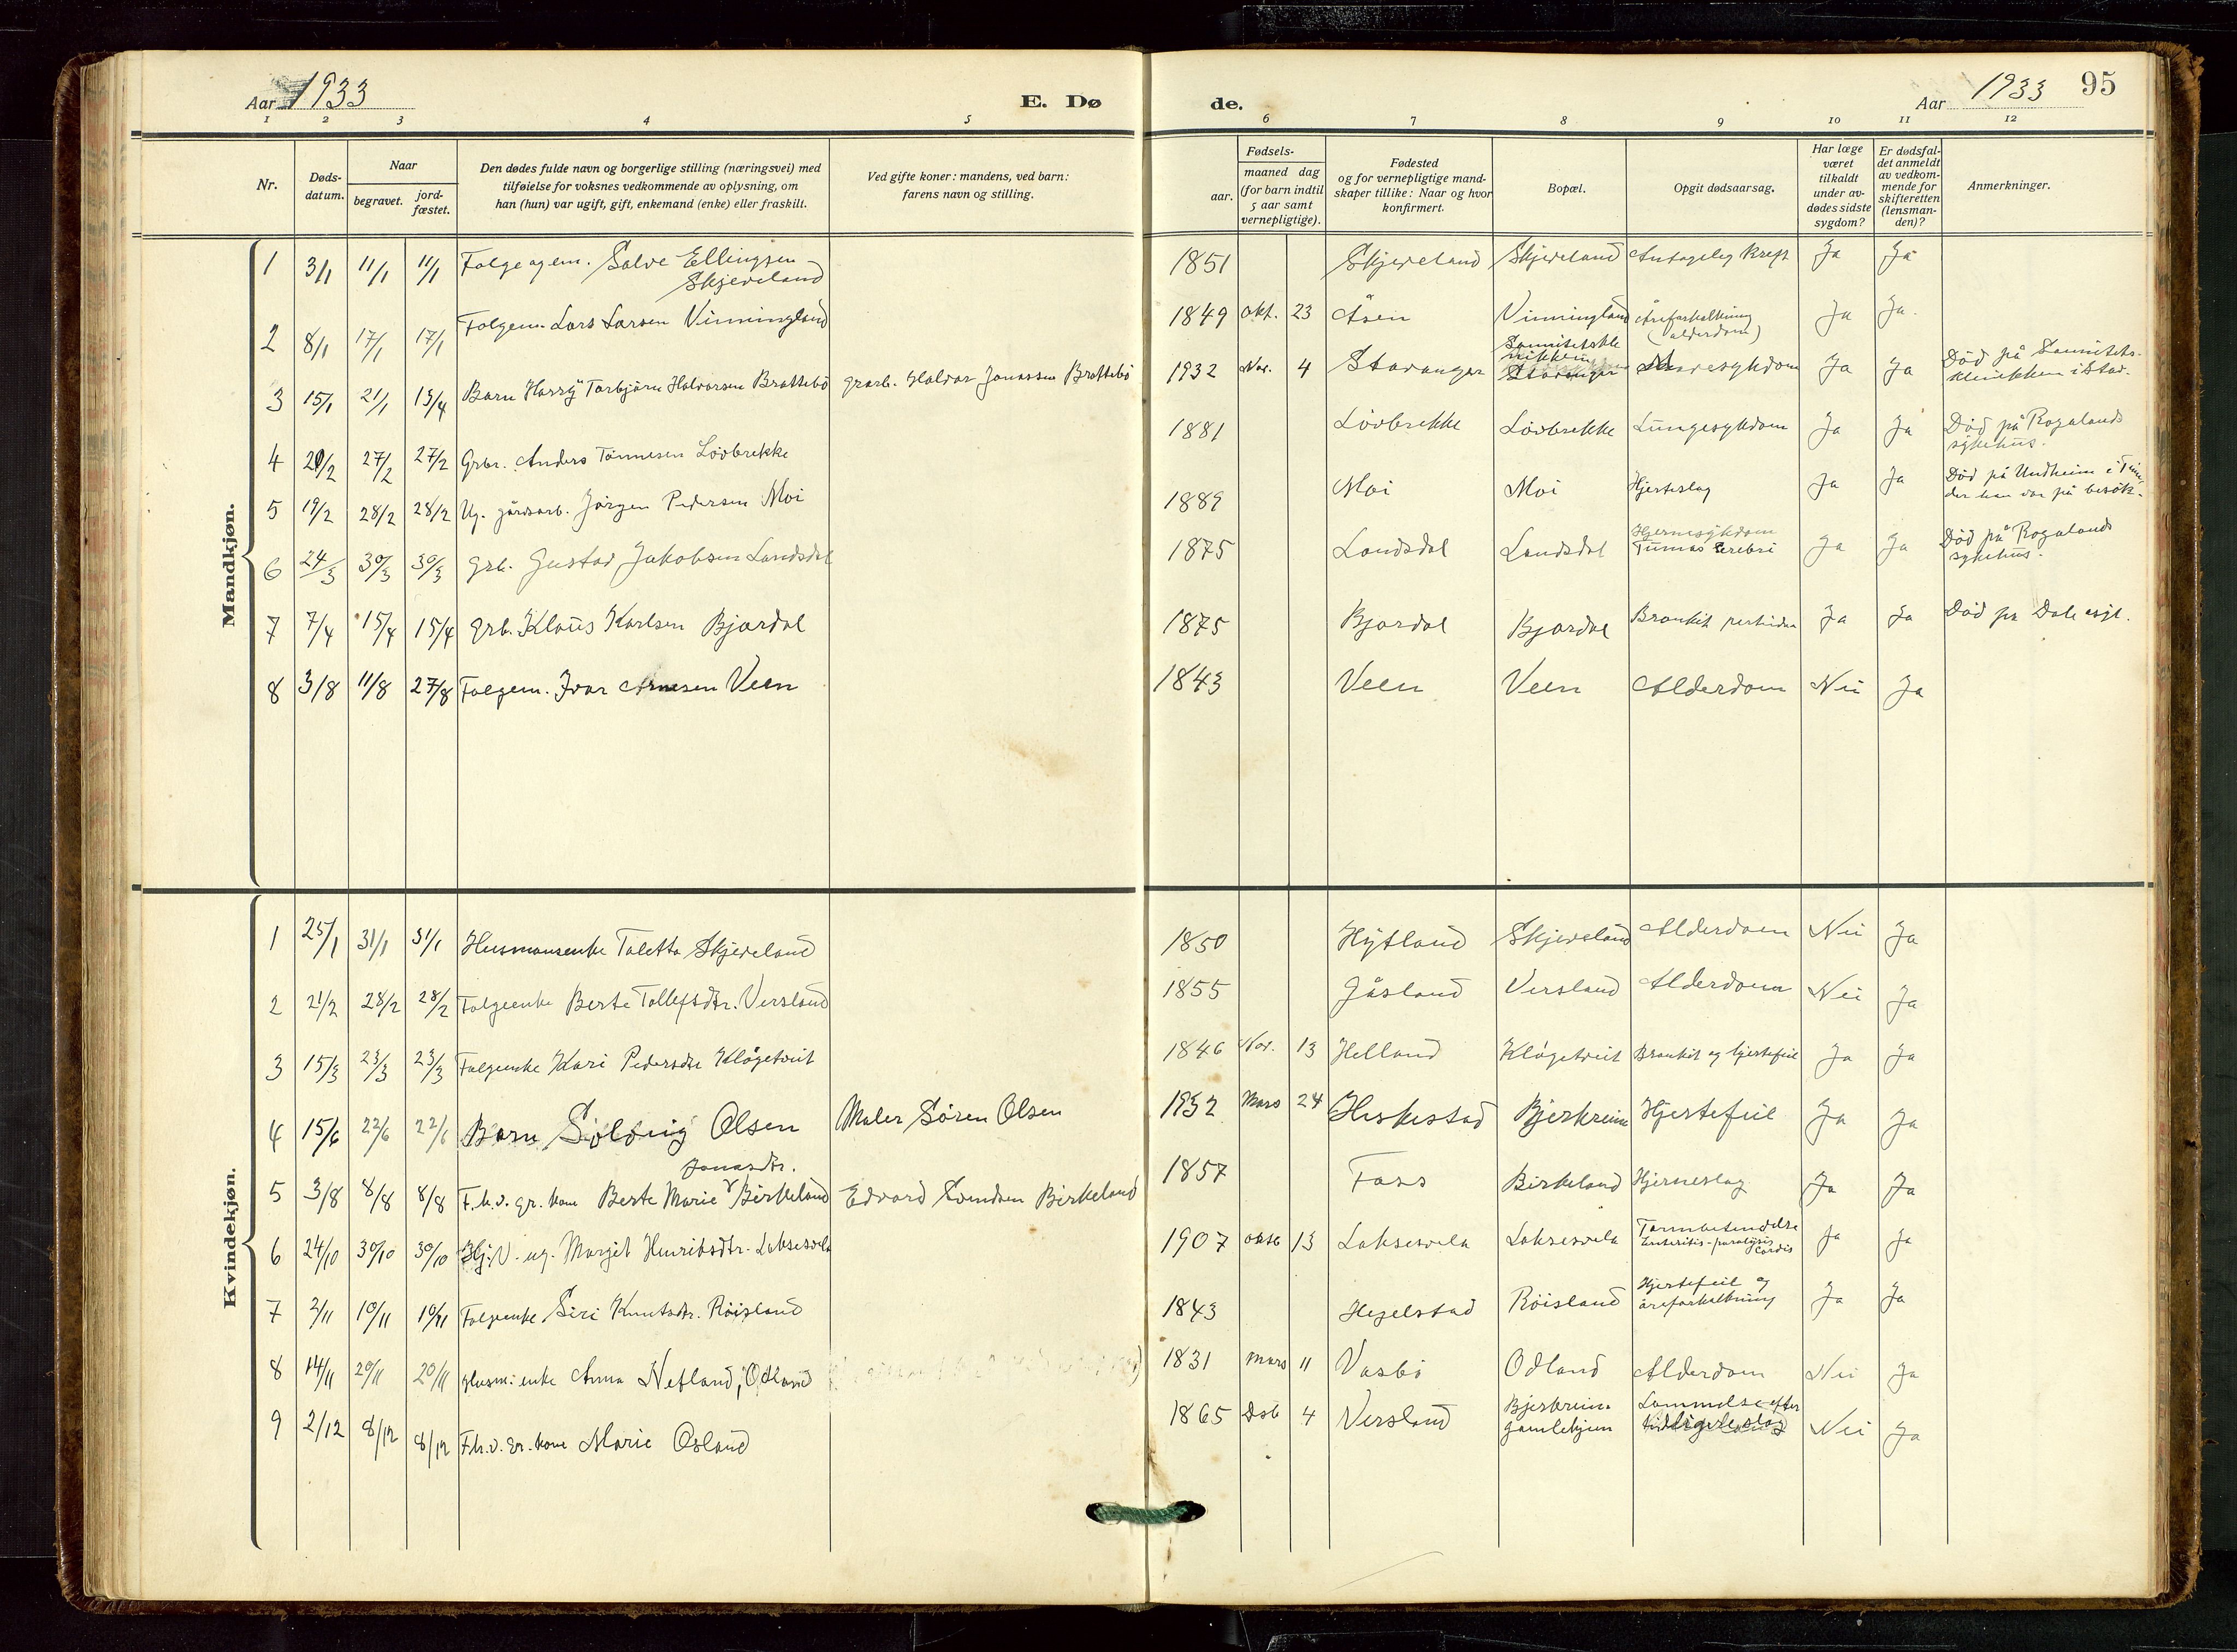 Aar 1933
E. Dø
de.
Aar 1933
95
1 2 3 4 5 6 7 8 9 10 11 12
Nr.
Døds-
datum.
Naar
begravet.
jord-
fæstet.
Den dødes fulde navn og borgerlige stilling (næringsvei) med
tilføielse for voksnes vedkommende av oplysning, om
han (hun) var ugift, gift, enkemand (enke) eller fraskilt.
Ved gifte koner: mandens, ved barn:
farens navn og stilling.
Fødsels-
aar.
maaned dag
(for barn indtil
5 aar samt
vernepligtige).
Fødested
og for vernepligtige mand-
skaper tillike: Naar og hvor
konfirmert.
Bopæl.
Opgit dødsaarsag.
Har læge
været
tilkaldt
under av-
dødes sidste
sygdom?
Er dødsfal-
det anmeldt
av vedkom-
mende for
skifteretten
(lensman-
den)?
Anmerkninger.
Mandkjøn.
1 3/1 11/1 11/1 Folge og em. Salve Ellingsen Skjeveland 1851 Skjeveland Skjeveland Antagelig kreft Ja Ja
2 8/1 17/1 17/1 Folgem. Lars Larsen Vinningland 1849 Okt. 23 Åsen Vinningland Åreforkalkning (alderdom) Ja Ja
3 15/1 21/1 13/4 Barn Harry Torbjörn Halvorsen Brattebö grarb. Halvor Jonassen Brattebö 1932 Nov. 4 Stavanger Sannitetskli nikken Stavanger Ja Ja Död på Sannitets- klinikken i Stav.
4 20/2 27/2 27/2 Grbr. Anders Tönnesen Lövbrekke 1881 Lövbrekke Lövbrekke Lungesykdom Ja Ja Död på Rogalands sykehus.
5 19/2 28/2 28/2 Ug. gårdsarb. Jörgen Pedersen Moi 1889 Moi Moi Hjerteslag Ja Ja Död på Undheim i Time, der han var på besök.
6 24/3 30/3 30/3 Grb. Gustav Jakobsen Landsdal 1875 Landsdal Landsdal Hjernesykdom Tumas Cerebri Ja Ja Död på Rogalands sykehus.
7 7/4 15/4 15/4 Grb. Klaus Karlsen Bjordal 1875 Bjordal Bjordal Bronkit Ja Ja Död på Dale asyl.
8 3/8 11/8 27/8 Folgem. Ivar Arnesen Veen 1843 Veen Veen Alderdom Nei Ja
Kvindekjøn.
1 25/1 31/1 31/1 Husmansenke Taletta Skjeveland 1850 Hytland Skjeveland Alderdom Nei Ja
2 21/2 28/2 28/2 Folgeenke Berte Tollefsdtr. Versland 1855 Jåsland Versland Alderdom Nei Ja
3 15/3 23/3 23/3 Folgeenke Kari Pedersdtr Klögetveit 1846 Nov. 13 Helland Klögetveit Bronkit og hjertefeil Ja Ja
4 15/6 22/6 22/6 Barn Solveig Olsen Maler Sören Olsen 1932 Mars 24 Heskestad Bjerkreim Hjertefeil Ja Ja
Jonasdtr.
5 3/8 8/8 8/8 F.h.v. gr. kone Berte Marie Birkeland Edvard Svendsen Birkeland 1857 Foss Birkeland Hjerneslag Ja Ja
6 24/10 30/10 30/10 Hj.v. ug. Margit Henriksdtr. Laksesvela 1907 oktb 13 Laksesvela Laksesvela Tarmbetendelse Enteritis-paralysis Cordis Ja Ja
7 2/11 10/11 10/11 Folgeenke Siri Knutsdtr. Röisland 1843 Hegelstad Röisland Hjertefeil og åreforkalkning Ja Ja
8 14/11 20/11 20/11 Husm. enke Anna Netland, Odland 1831 Mars 11 Vasbö Odland Alderdom Nei Ja
9 2/12 8/12 8/12 F.h.v. gr. kone Marie Osland 1865 Dsb 4 Versland Bjerkreim gamlehjem Lammelse efter tidligere slag Nei Ja